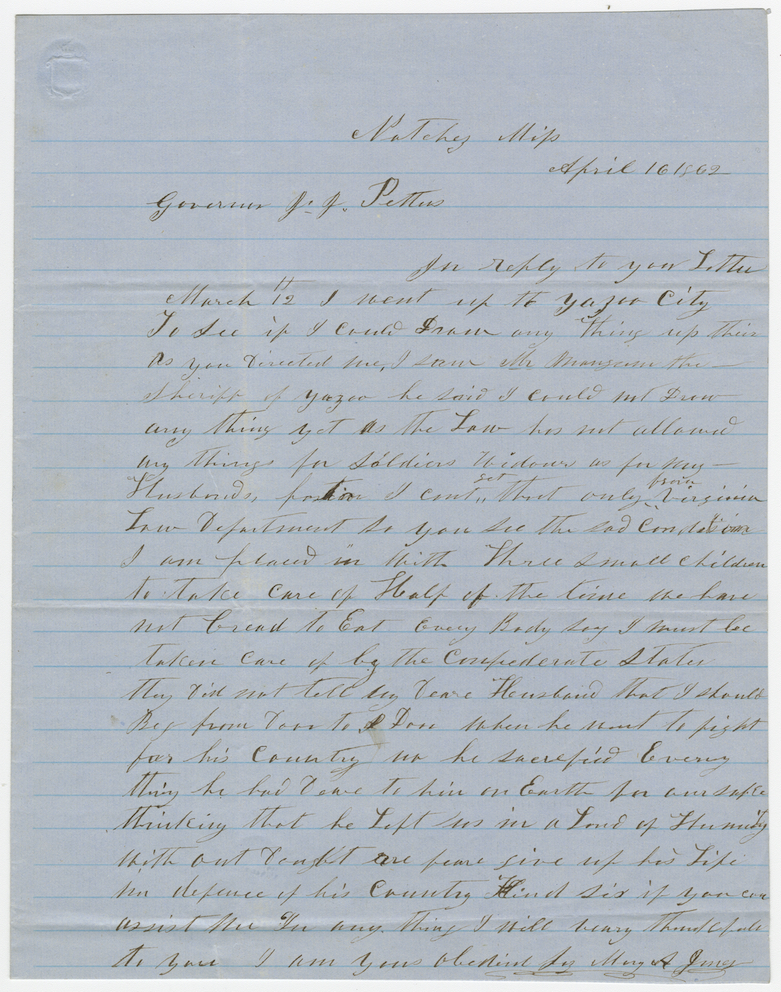 Natchez Miss
April 16 1862
Governor J. J. Pettus
In reply to your Letter
March 12th I went up to yazoo City
To See if I could Draw any thing up their
As you Directed me, I saw Mr Mangum the
Sheriff of yazoo he said I could not Draw
any thing yet As the Law has not allowed
any things for Soldiers Widows as for my
Husbands, portion I cant get that only from Virginia
Law Department So you see the sad Condetion
I am placed in With Three small children
to take care of Half of the time we have
not bread to Eat Every Body say I must be
taken care of by the Confederate States
they Did not tell my Deare Heusband that I should
Beg from Door to Door when he went to fight
for his Country no he sacrefied Every
thing he had Deare to him on Earth for our sake
thinking that he Left us in a Land of
With out Dought are feare give up his Life
in defence of his Country Kind sir if you can
assist me In any thing I will be very thankfull
to you I am yous obedient Mary A Jones